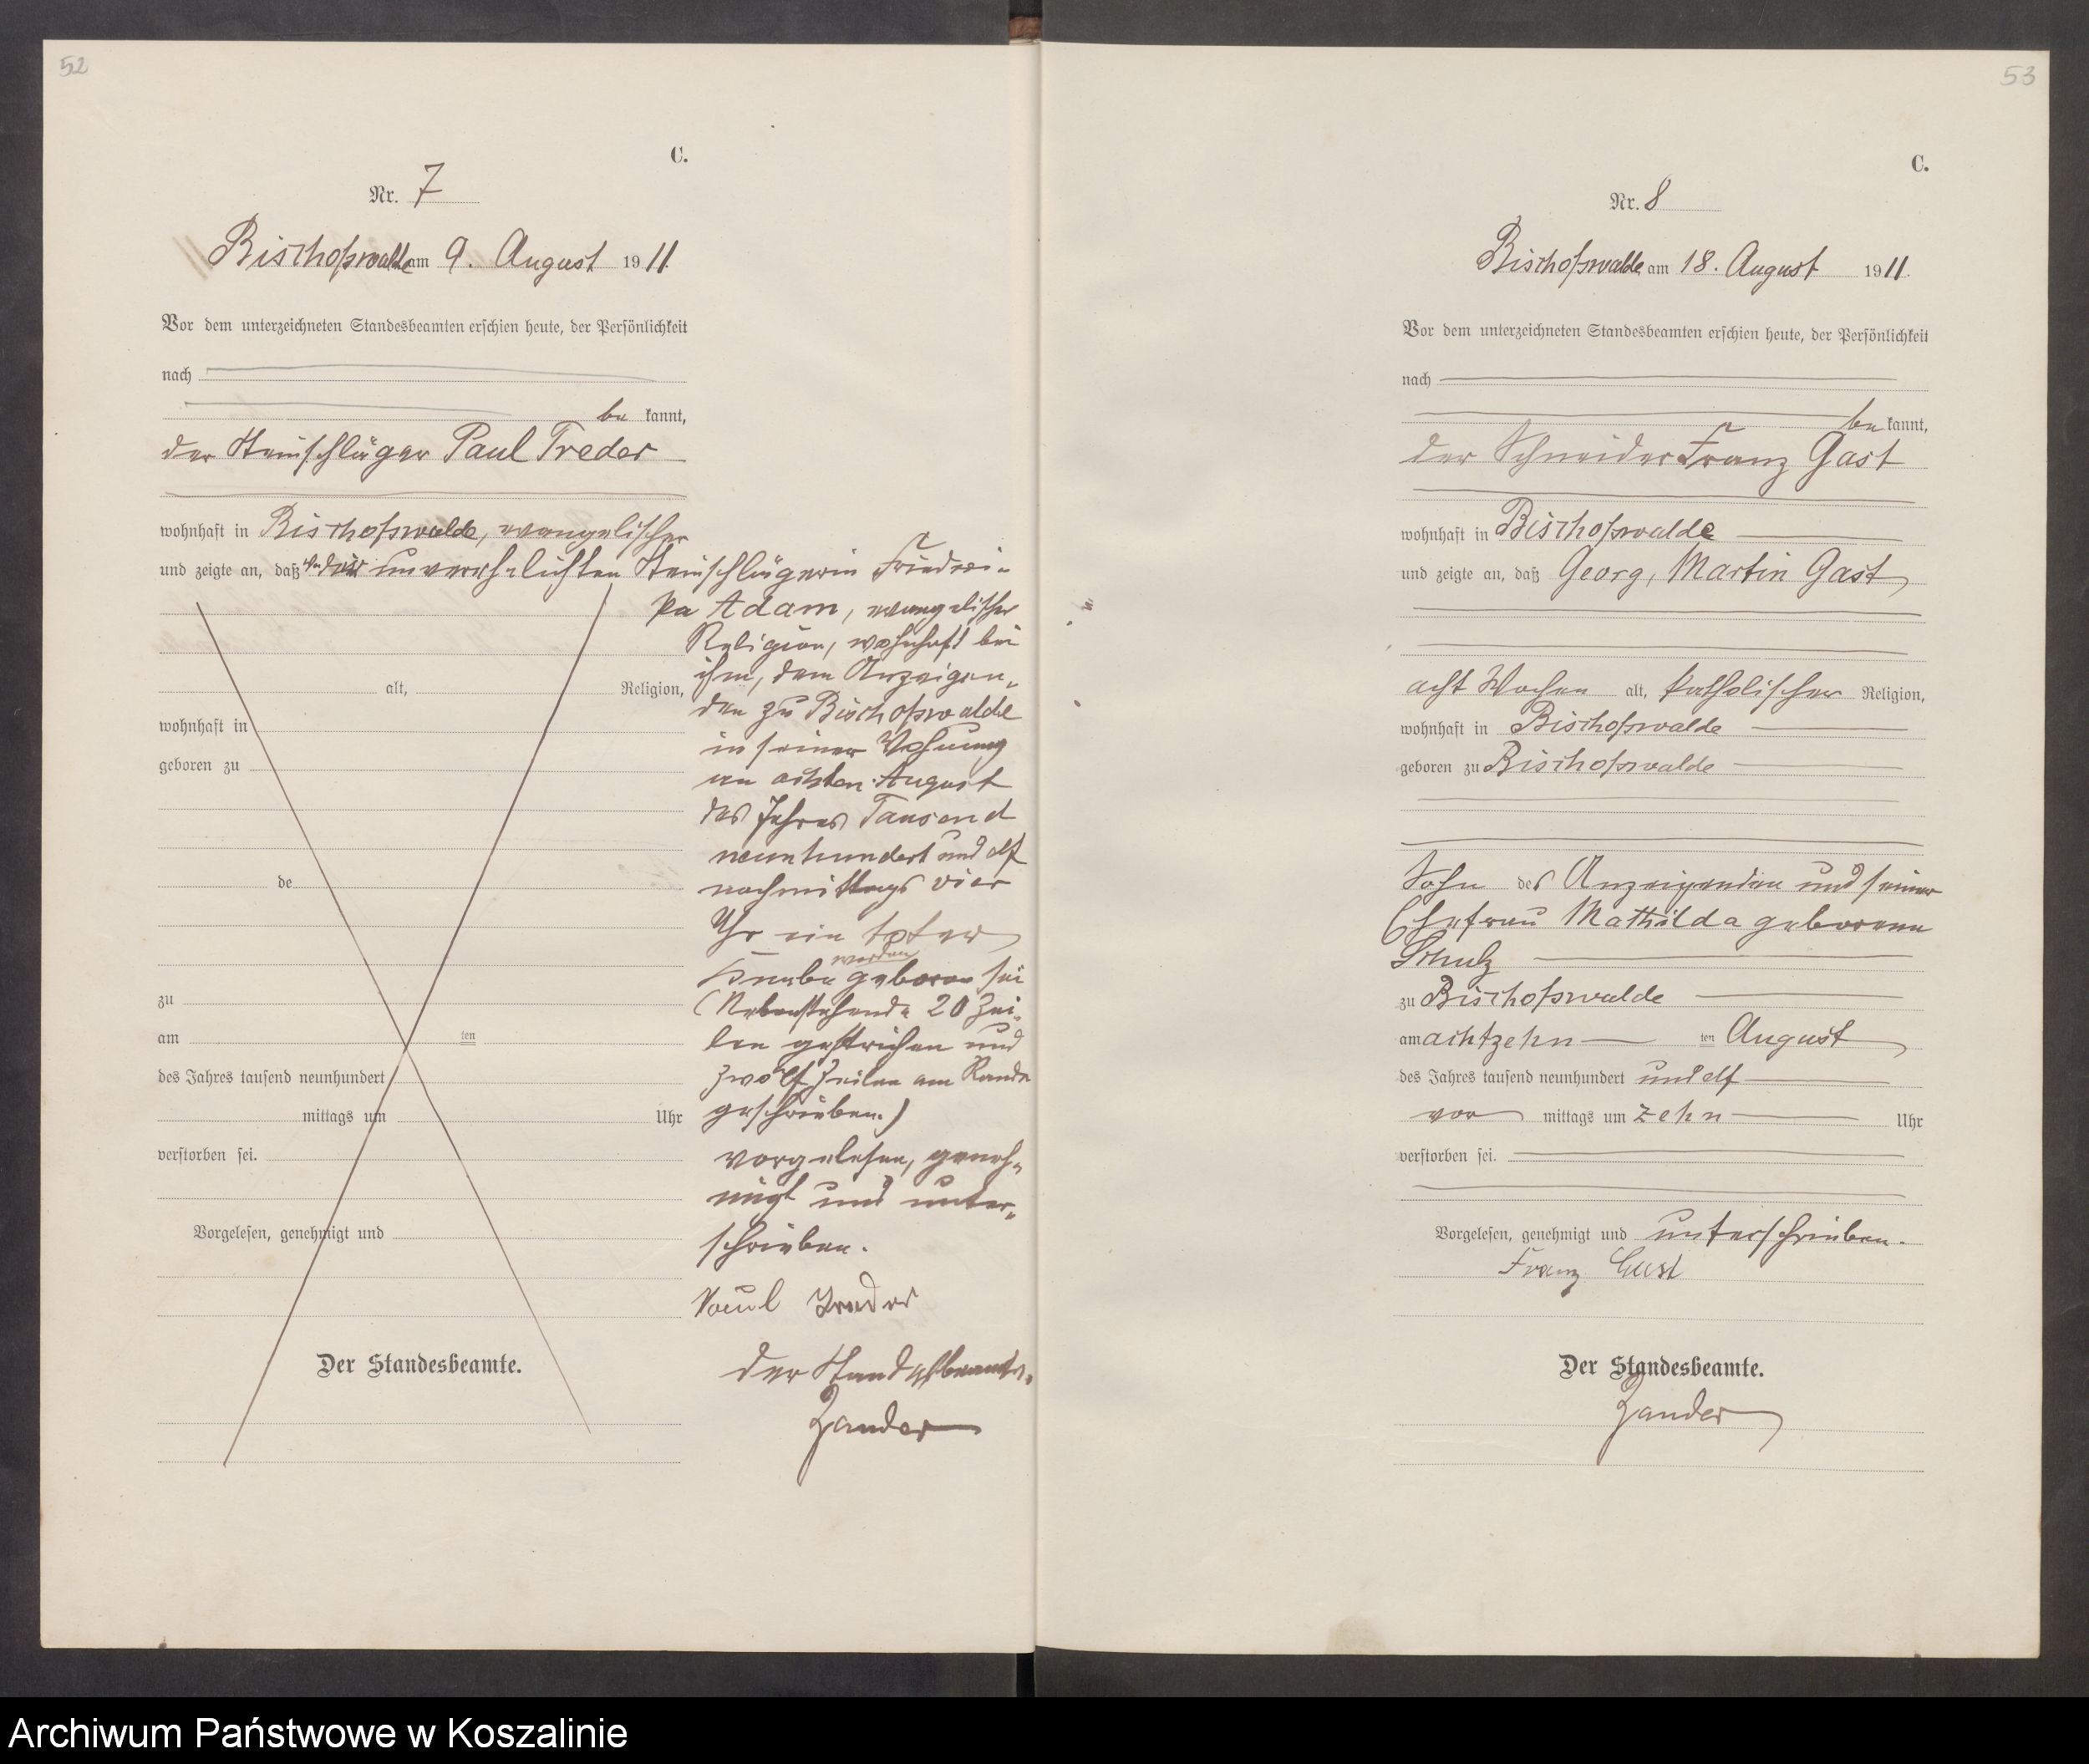 52
C.
Nr. 7
Bischofswalde am 9. August 1911.
Vor dem unterzeichneten Standesbeamten erschien heute, der Persönlichkeit
nach
be kannt,
der Steinschläger Paul Treder
wohnhaft in Bischofswalde, evangelischer
und zeigte an, daß von der unverehelichten Steinschlägerin Friedri-
ka Adam, evangelischer
Religion, wohnhaft bei
ihm, dem Anzeigen-
den zu Bischofswalde
in seiner Wohnung
am achten August
des Jahres Tausend
neunhundert und elf
nachmittags vier
Uhr ein toter
worden
Knabe geboren sei
(Nebenstehende 20 Zei-
len gestrichen und
zwölf Zeilen am Rande
geschrieben.)
vorgelesen, geneh-
migt und unter-
schrieben.
Paul Treder
der Standesbeamte.
Zander
alt, Religion,
wohnhaft in
geboren zu
de
zu
am ten
des Jahres tausend neunhundert
mittags um Uhr
verstorben sei.
Vorgelesen, genehmigt und
Der Standesbeamte.
53
C.
Nr. 8
Bischofswalde am 18. August 1911.
Vor dem unterzeichneten Standesbeamten erschien heute, der Persönlichkeit
nach
be kannt,
der Schneider Franz Gast
wohnhaft in Bischofswalde
und zeigte an, daß Georg, Martin Gast,
acht Wochen alt, katholischer Religion,
wohnhaft in Bischofswalde
geboren zu Bischofswalde
Sohn des Anzeigenden und seiner
Ehefrau Mathilda geborene
Schulz
zu Bischofswalde
am achtzehn ten August
des Jahres tausend neunhundert und elf
vor mittags um zehn Uhr
verstorben sei.
Vorgelesen, genehmigt und unterschrieben.
Franz Gast
Der Standesbeamte.
Zander
Archiwum Państwowe w Koszalinie